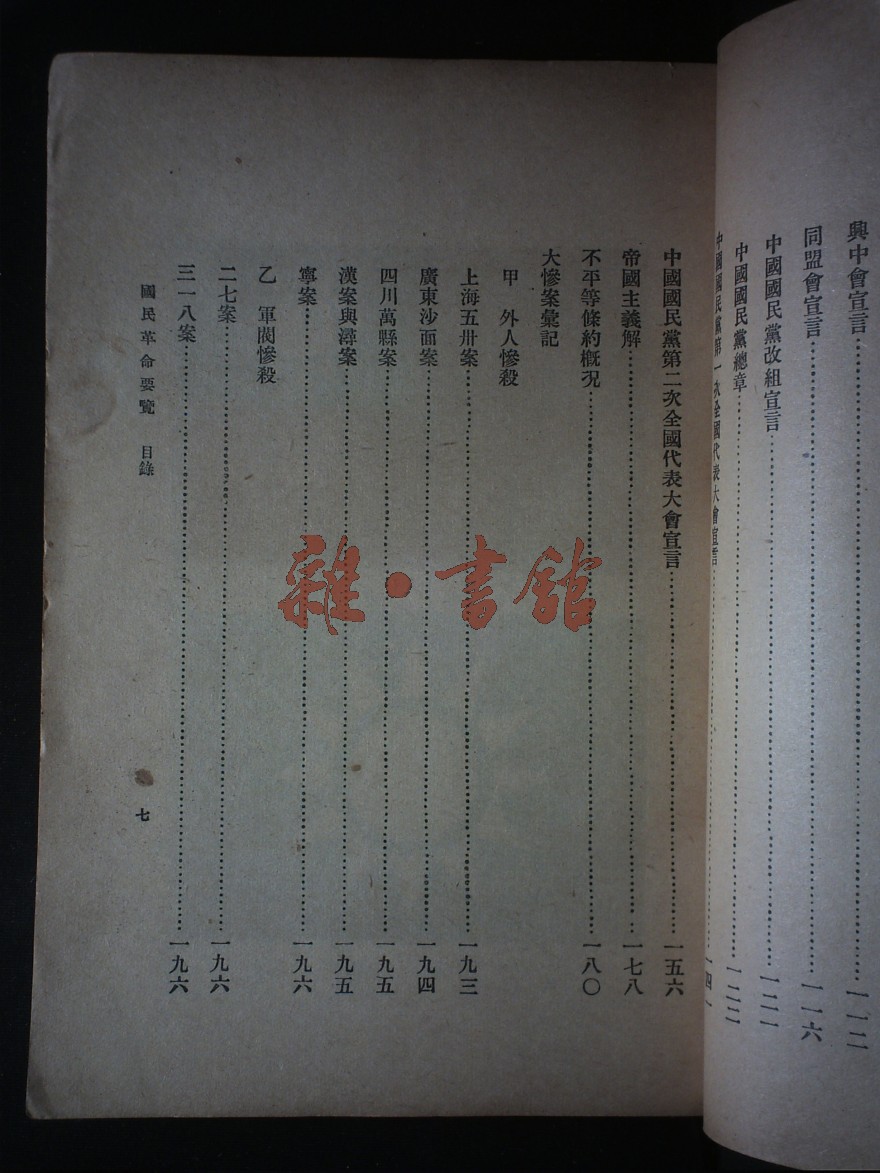 興中會宣言……一一二
同盟會宣言……一一六
中國國民黨改組宣言……一二一
中國國民黨總章……一二二
中國國民黨第一次全國代表大會宣言……一四一
中國國民黨第二次全國代表大會宣言……一五六
帝國主義解……一七八
不平等條約概況……一八〇
大慘案彙記
甲 外人慘殺
上海五卅案……一九三
廣東沙面案……一九四
四川萬縣案……一九五
漢案與潯案……一九五
寧案……一九六
乙 軍閥慘殺
二七案……一九六
三一八案……一九六
國民革命要覽 目錄
七
雜·書館